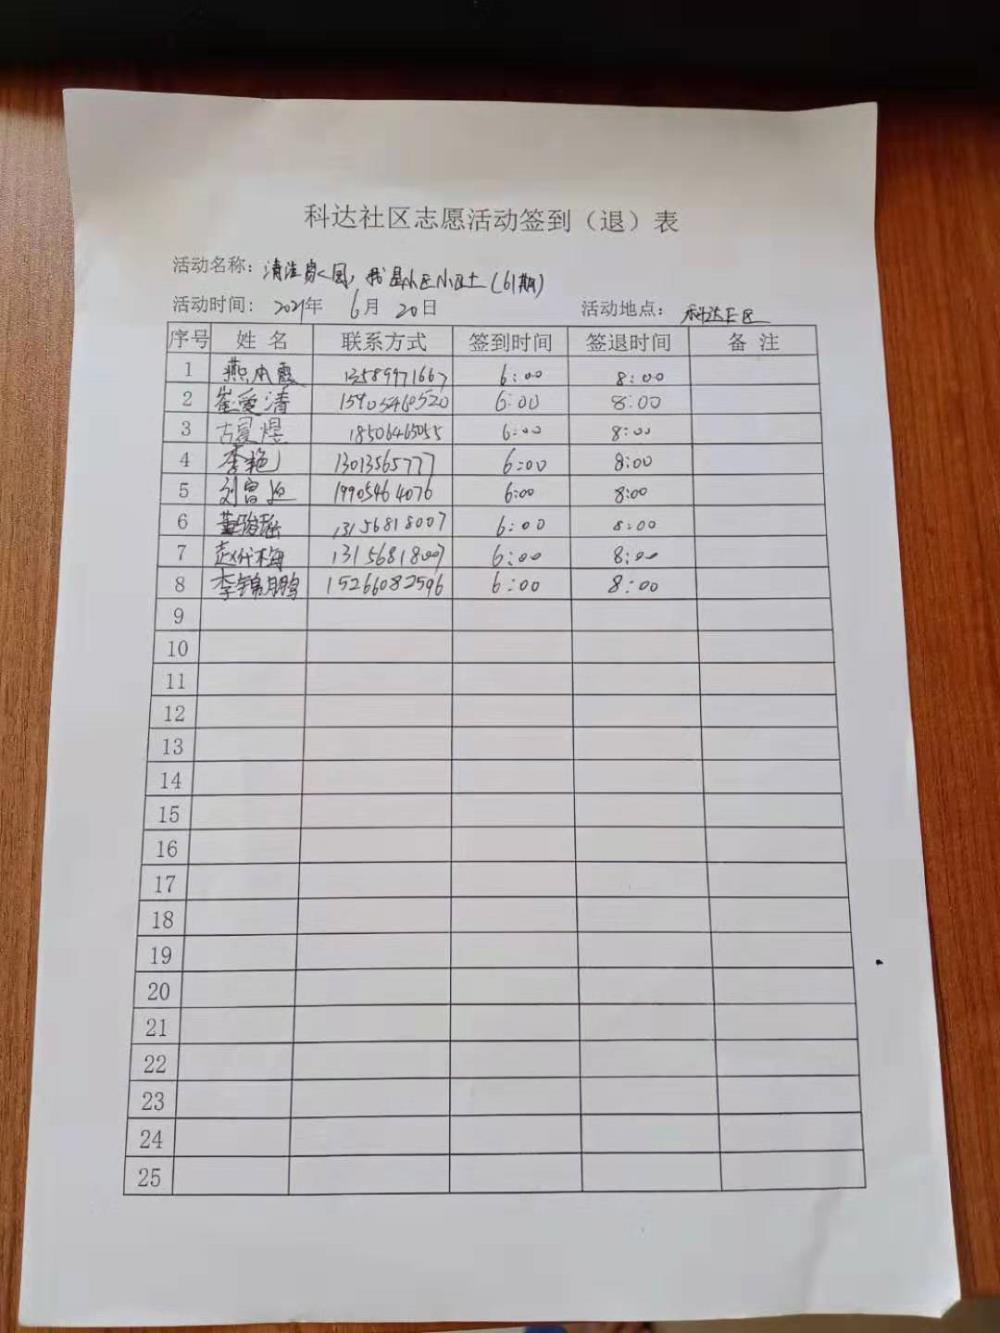 科达社区志愿活动签到（退）表
活动名称：清洁家园，我是小区小卫士（61期）
活动时间： 2021年 6月 20日 活动地点： 科达社区
序号 姓 名 联系方式 签到时间 签退时间 备 注
1 燕本霞 13589971667 6:00 8:00
2 崔爱清 15905460520 6:00 8:00
3 古曼煜 18506465055 6:00 8:00
4 李艳 13013565777 6:00 8:00
5 刘富 19905464076 6:00 8:00
6 董骏瑶 13156818007 6:00 8:00
7 赵代梅 13156818007 6:00 8:00
8 李锦鹏 15266082596 6:00 8:00
9
10
11
12
13
14
15
16
17
18
19
20
21
22
23
24
25